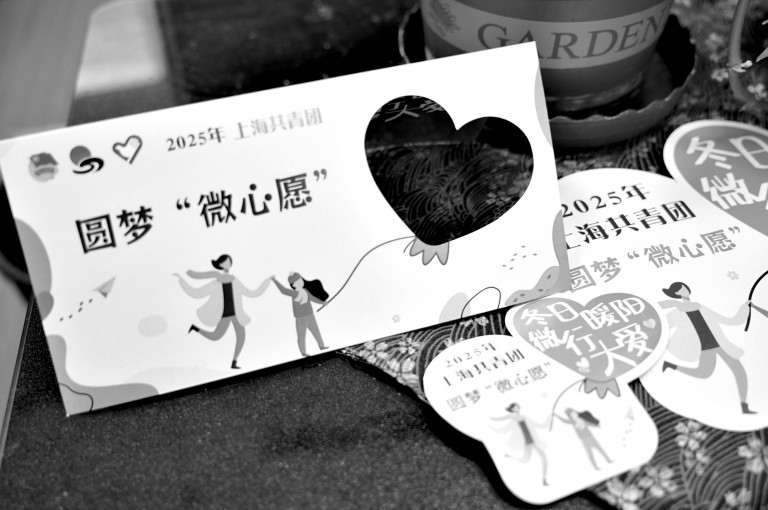 GARDEN
2025年 上海共青团
圆梦 “微心愿”
大爱
冬日
微
2025年
上海共青团
圆梦 “微心愿”
冬日
微行暖阳
大爱
2025年
上海共青团
圆梦 “微心愿”